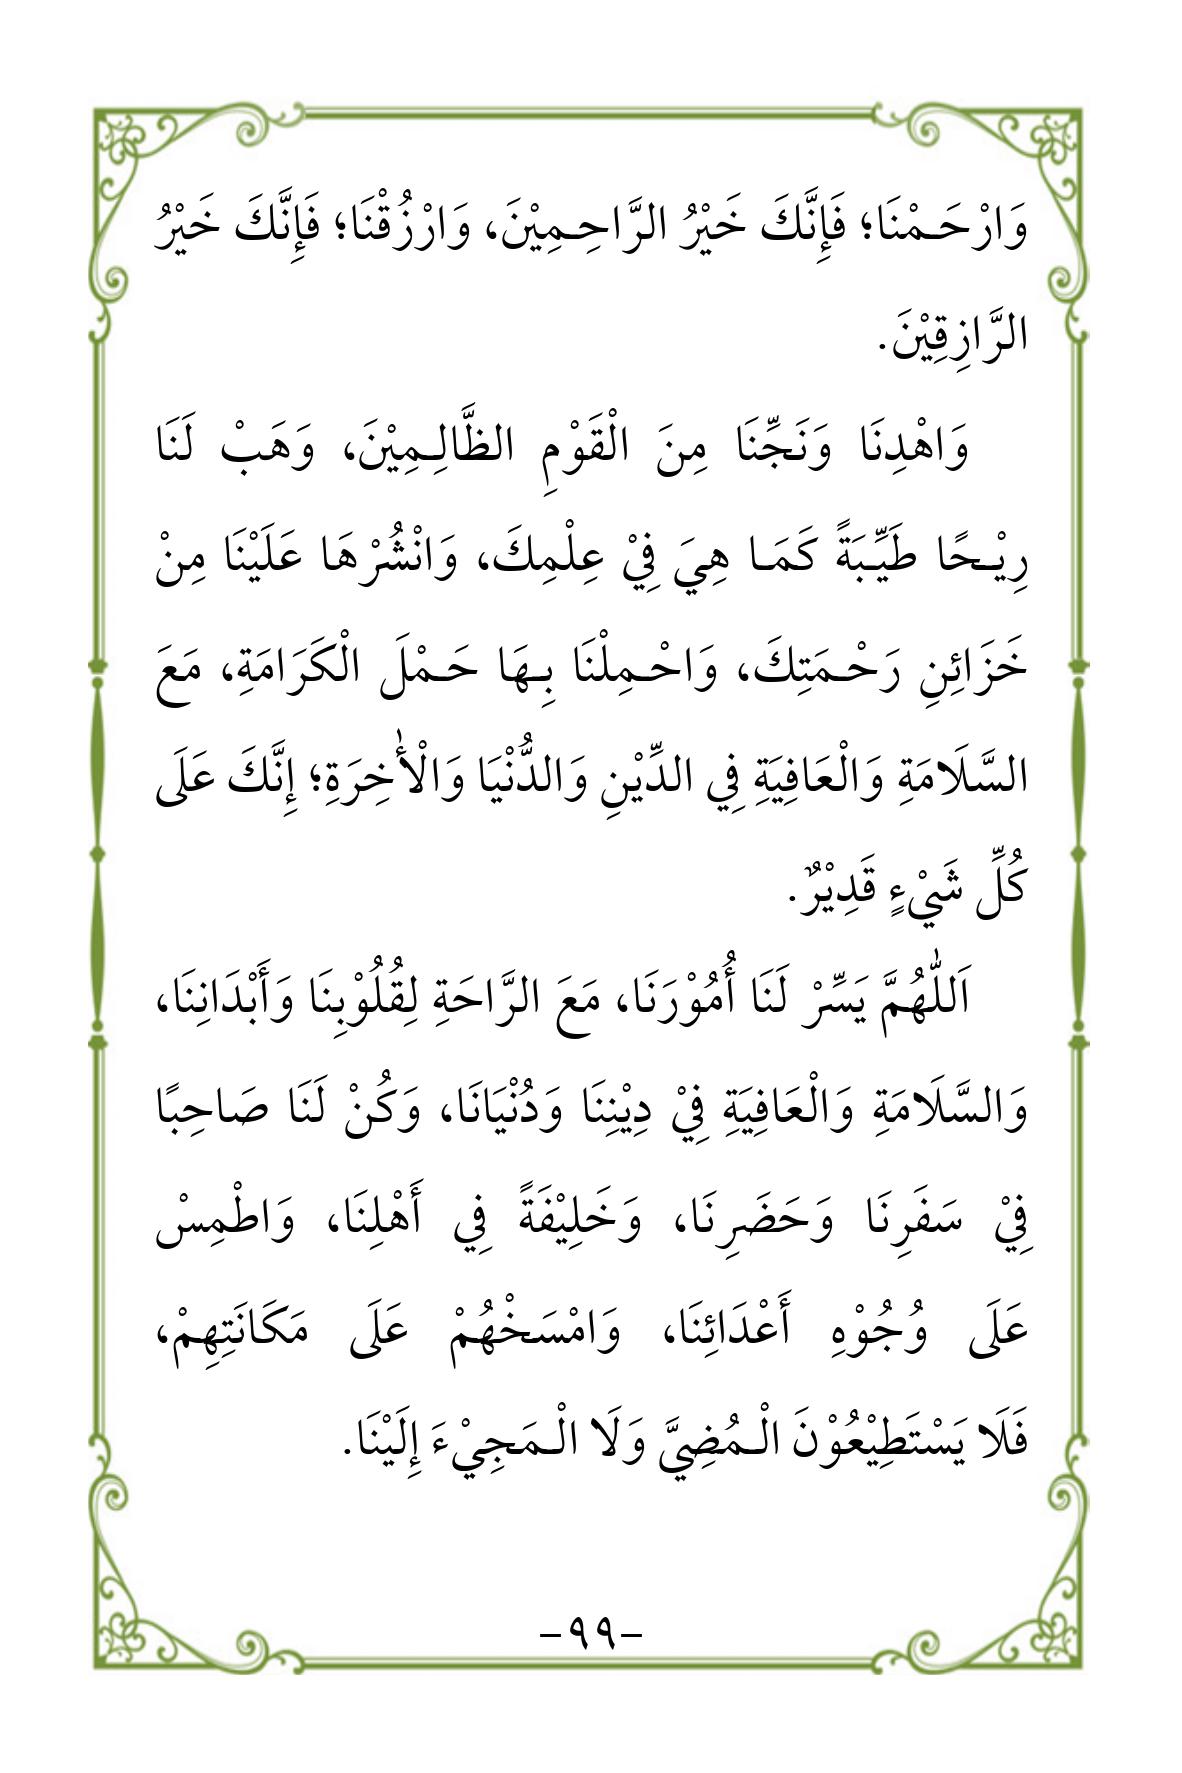 وَارْحَـمْنَا؛ فَإِنَّكَ خَيْرُ الرَّاحِـمِيْنَ، وَارْزُقْنَا؛ فَإِنَّكَ خَيْرُ
الرَّازِقِيْنَ.
وَاهْدِنَا وَنَجِّنَا مِنَ الْقَوْمِ الظَّالِـمِيْنَ، وَهَبْ لَنَا
رِيْـحًا طَيِّـبَةً كَمَـا هِيَ فِيْ عِلْمِكَ، وَانْشُرْهَا عَلَيْنَا مِنْ
خَزَائِنِ رَحْـمَتِكَ، وَاحْـمِلْنَا بِـهَا حَـمْلَ الْكَرَامَةِ، مَعَ
السَّلَامَةِ وَالْعَافِيَةِ فِي الدِّيْنِ وَالدُّنْيَا وَالْأٰخِرَةِ؛ إِنَّكَ عَلَى
كُلِّ شَيْءٍ قَدِيْرٌ.
اَللّٰهُمَّ يَسِّرْ لَنَا أُمُوْرَنَا، مَعَ الرَّاحَةِ لِقُلُوْبِنَا وَأَبْدَانِنَا،
وَالسَّلَامَةِ وَالْعَافِيَةِ فِيْ دِيْنِنَا وَدُنْيَانَا، وَكُنْ لَنَا صَاحِبًا
فِيْ سَفَرِنَا وَحَضَرِنَا، وَخَلِيْفَةً فِي أَهْلِنَا، وَاطْمِسْ
عَلَى وُجُوْهِ أَعْدَائِنَا، وَامْسَخْهُمْ عَلَى مَكَانَتِهِمْ،
فَلَا يَسْتَطِيْعُوْنَ الْـمُضِيَّ وَلَا الْـمَجِيْءَ إِلَيْنَا.
-٩٩-